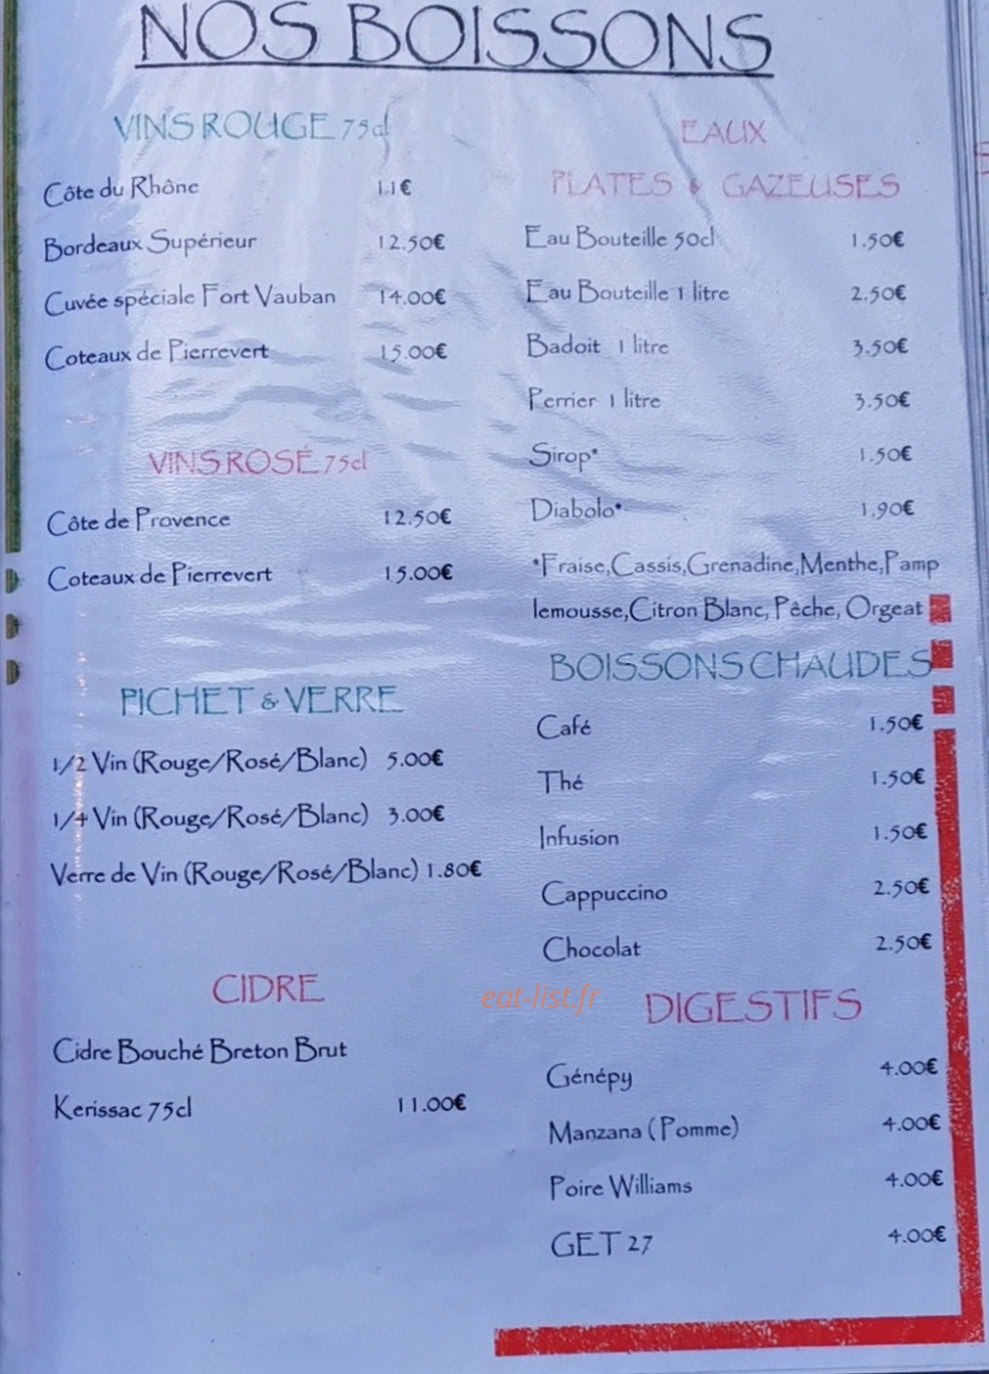 NOS BOISSONS
VINS ROUGE 75cl
Côte du Rhône 11€
Bordeaux Supérieur 12.50€
Cuvée spéciale Fort Vauban 14.00€
Coteaux de Pierrevert 15.00€
VINS ROSÉ 75cl
Côte de Provence 12.50€
Coteaux de Pierrevert 15.00€
PICHET & VERRE
1/2 Vin (Rouge/Rosé/Blanc) 5.00€
1/4 Vin (Rouge/Rosé/Blanc) 3.00€
Verre de Vin (Rouge/Rosé/Blanc) 1.80€
CIDRE
Cidre Bouché Breton Brut
Kerissac 75cl 11.00€
EAUX
PLATES & GAZEUSES
Eau Bouteille 50cl 1.50€
Eau Bouteille 1 litre 2.50€
Badoit 1 litre 3.50€
Perrier 1 litre 3.50€
Sirop* 1.50€
Diabolo* 1.90€
*Fraise,Cassis,Grenadine,Menthe,Pamp
lemousse,Citron Blanc, Pêche, Orgeat
BOISSONS CHAUDES
Café 1.50€
Thé 1.50€
Infusion 1.50€
Cappuccino 2.50€
Chocolat 2.50€
eat-list.fr
DIGESTIFS
Génépy 4.00€
Manzana (Pomme) 4.00€
Poire Williams 4.00€
GET 27 4.00€